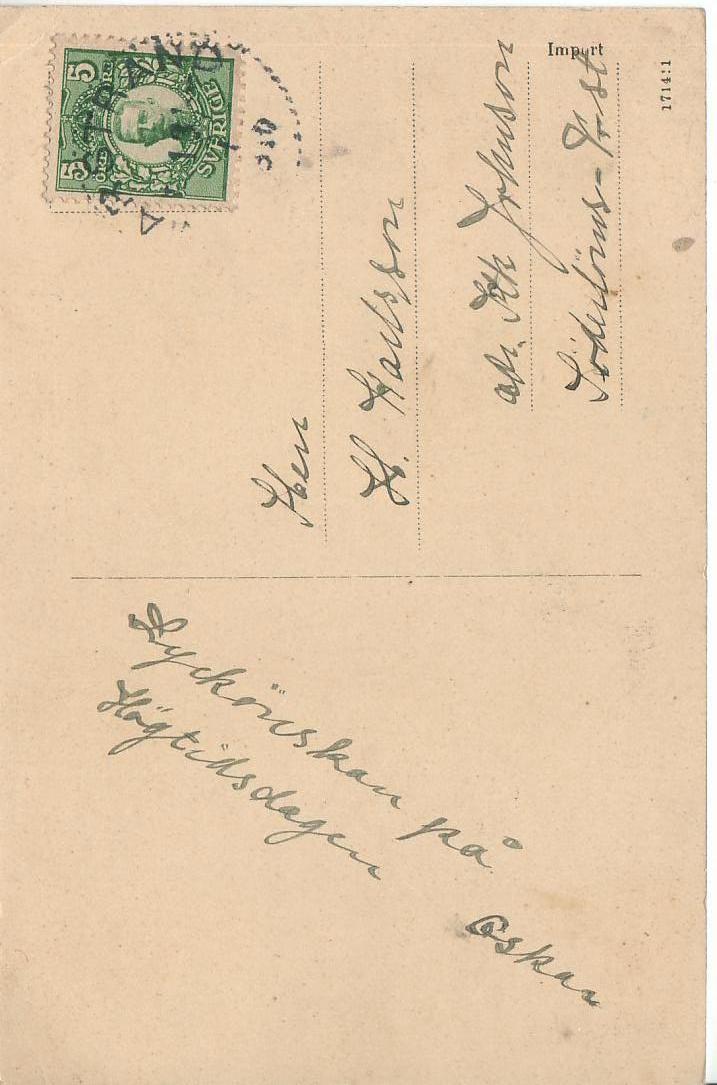 Lyckönskan på
Högtidsdagen
Oskar
5 5
ÖRE ÖRE
SVERIGE
Herr
H. Karlsson
adr. Johnson
Import
1714:1